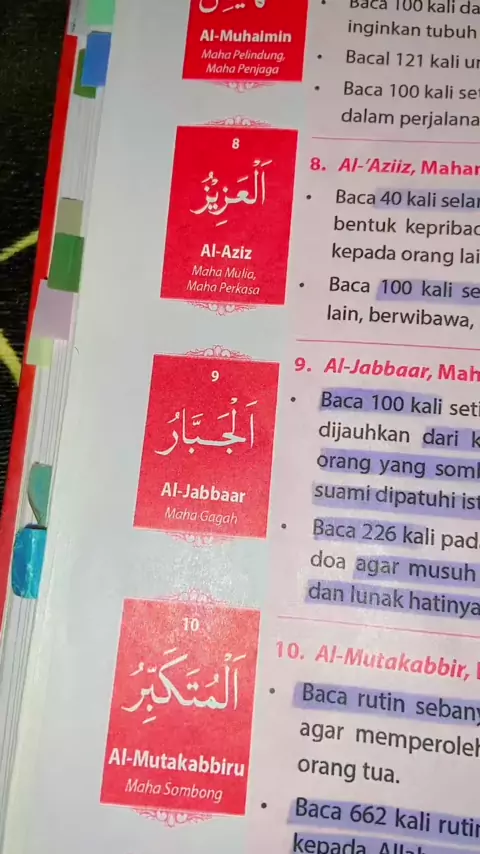 Al-Muhaimin
Maha Pelindung,
Maha Penjaga
8
اَلْعَزِيْزُ
Al-Aziz
Maha Mulia,
Maha Perkasa
9
اَلْجَبَّارُ
Al-Jabbaar
Maha Gagah
10
اَلْمُتَكَبِّرُ
Al-Mutakabbiru
Maha Sombong
Baca 100 kali da
inginkan tubuh
• Bacal 121 kali
• Baca 100 kali
dalam perjalana
8. Al-'Aziiz,
• Baca 40 kali
bentuk
kepada orang
• Baca 100 kali
lain, berwibawa,
9. Al-Jabbaar,
• Baca 100 kali
dijauhkan dari
orang yang
suami dipatuhi
• Baca 226 kali
doa agar musuh
dan lunak hatinya
10. Al-Mutakabbir,
• Baca rutin
agar
orang tua.
• Baca 662 kali
kepada